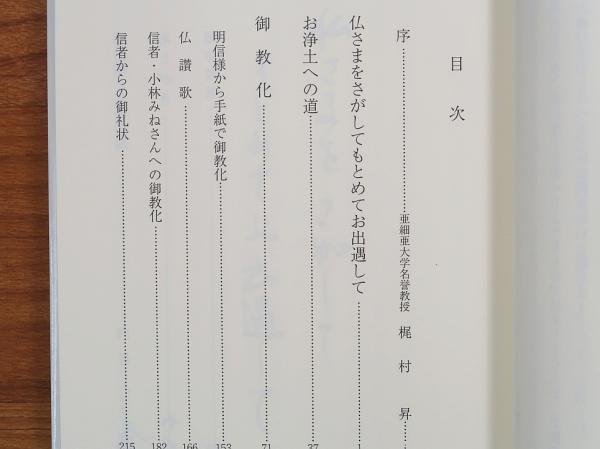 目次
序……………………亜細亜大学名誉教授 梶村 昇…
仏さまをさがしてもとめてお出遇して……………1
お浄土への道……………………………………37
御教化……………………………………………71
明信様から手紙で御教化………………………153
仏讃歌……………………………………………166
信者・小林みねさんへの御教化………………182
信者からの御礼状………………………………215